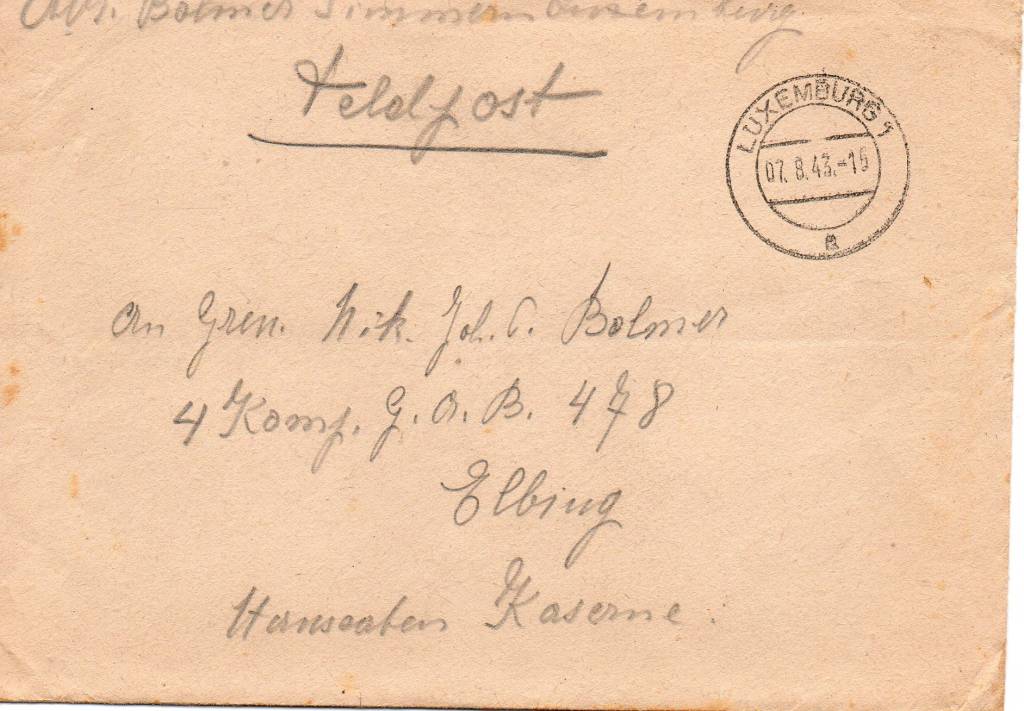 Abs. Bolmer Simmern Luxemburg
Feldpost
LUXEMBURG 1
07. 8. 43.-16
a
An Gren. Nik. Joh. C. Bolmer
4 Komp. G. A. B. 478
Elbing
Hanseaten Kaserne.